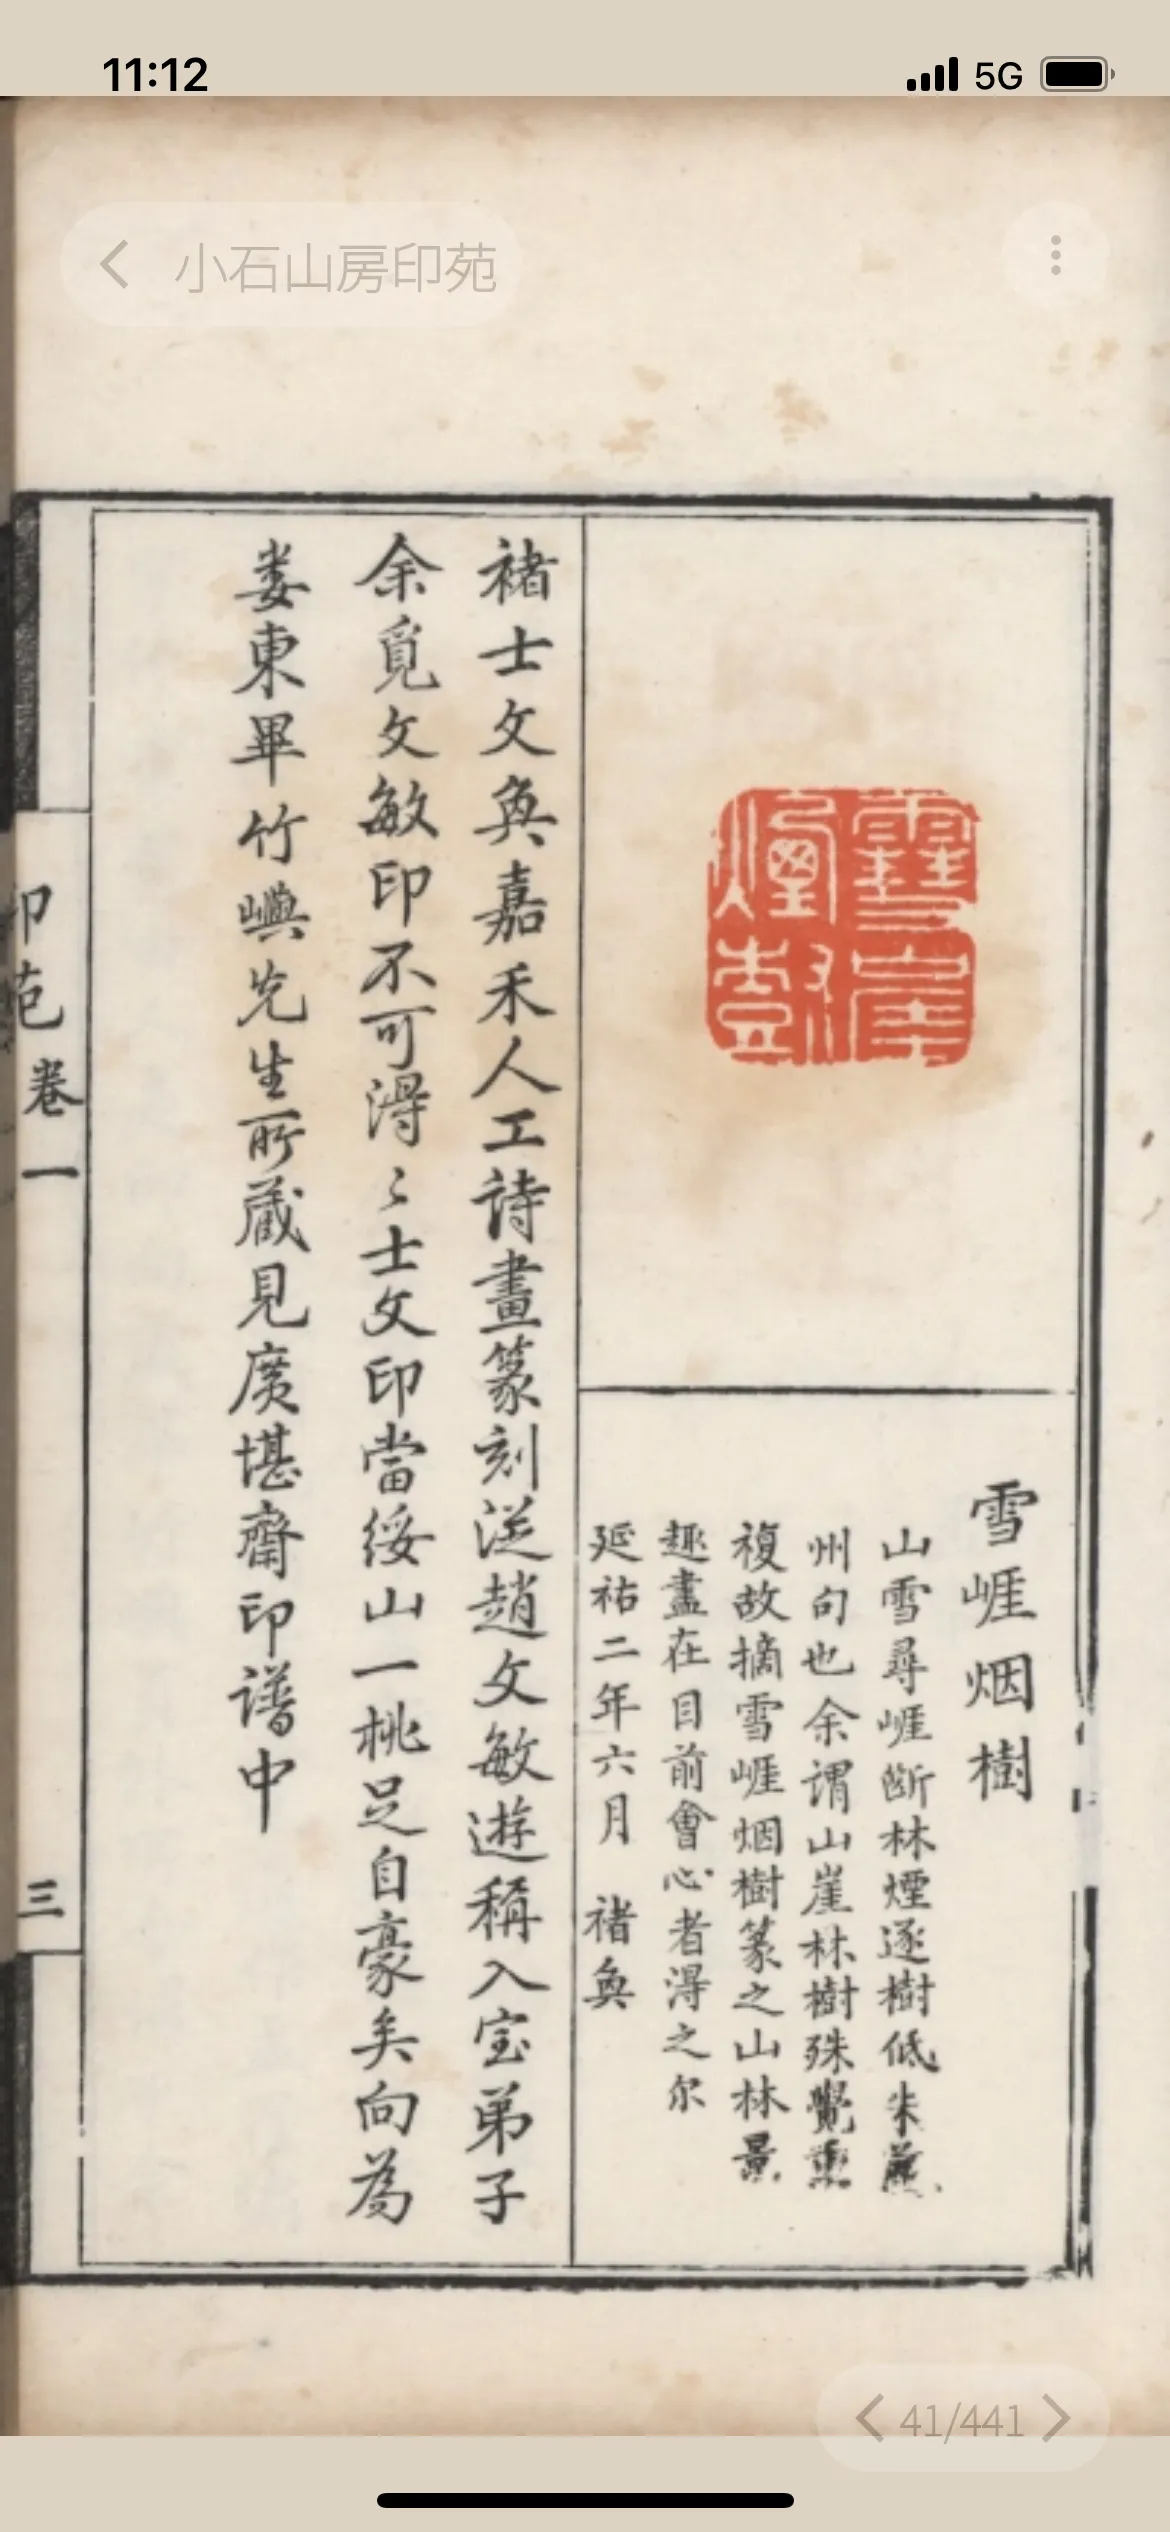 11:12
5G
小石山房印苑
雪崕烟樹
雪崕烟樹
山雪尋崕斷林煙逐樹低朱
州句也余謂山崖林樹殊覺重
複故摘雪崕烟樹篆之山林景
趣盡在目前會心者淂之尔
延祐二年六月 褚奐
褚士文奐嘉禾人工詩畫篆刻從趙文敏遊稱入室弟子
余覓文敏印不可淂〻士文印當綏山一桃足自豪矣向為
婁東畢竹嶼先生所藏見廣堪齋印譜中
印苑 卷一
三
41/441